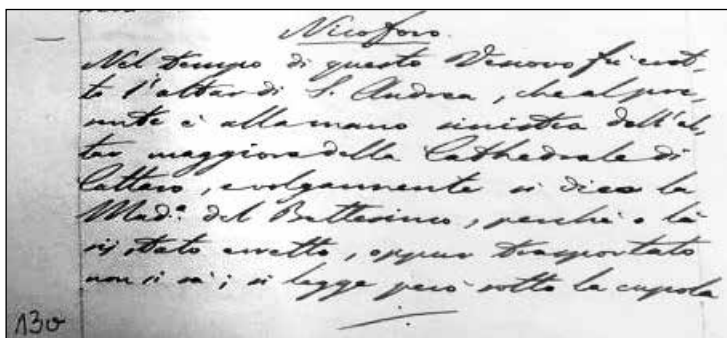 Nicoforo.
Nel tempo di questo Vescovo fu eret-
to l'altar di S. Andrea, che al pre-
sente è alla mano sinistra dell'al-
tar maggiore della Cathedrale di
Cattaro, e volgarmente si dice la
Mad.ª del Battesimo, perchè o là
sij stato erretto, oppur trasportato
non si sà; si legge però sotto la cupola
130